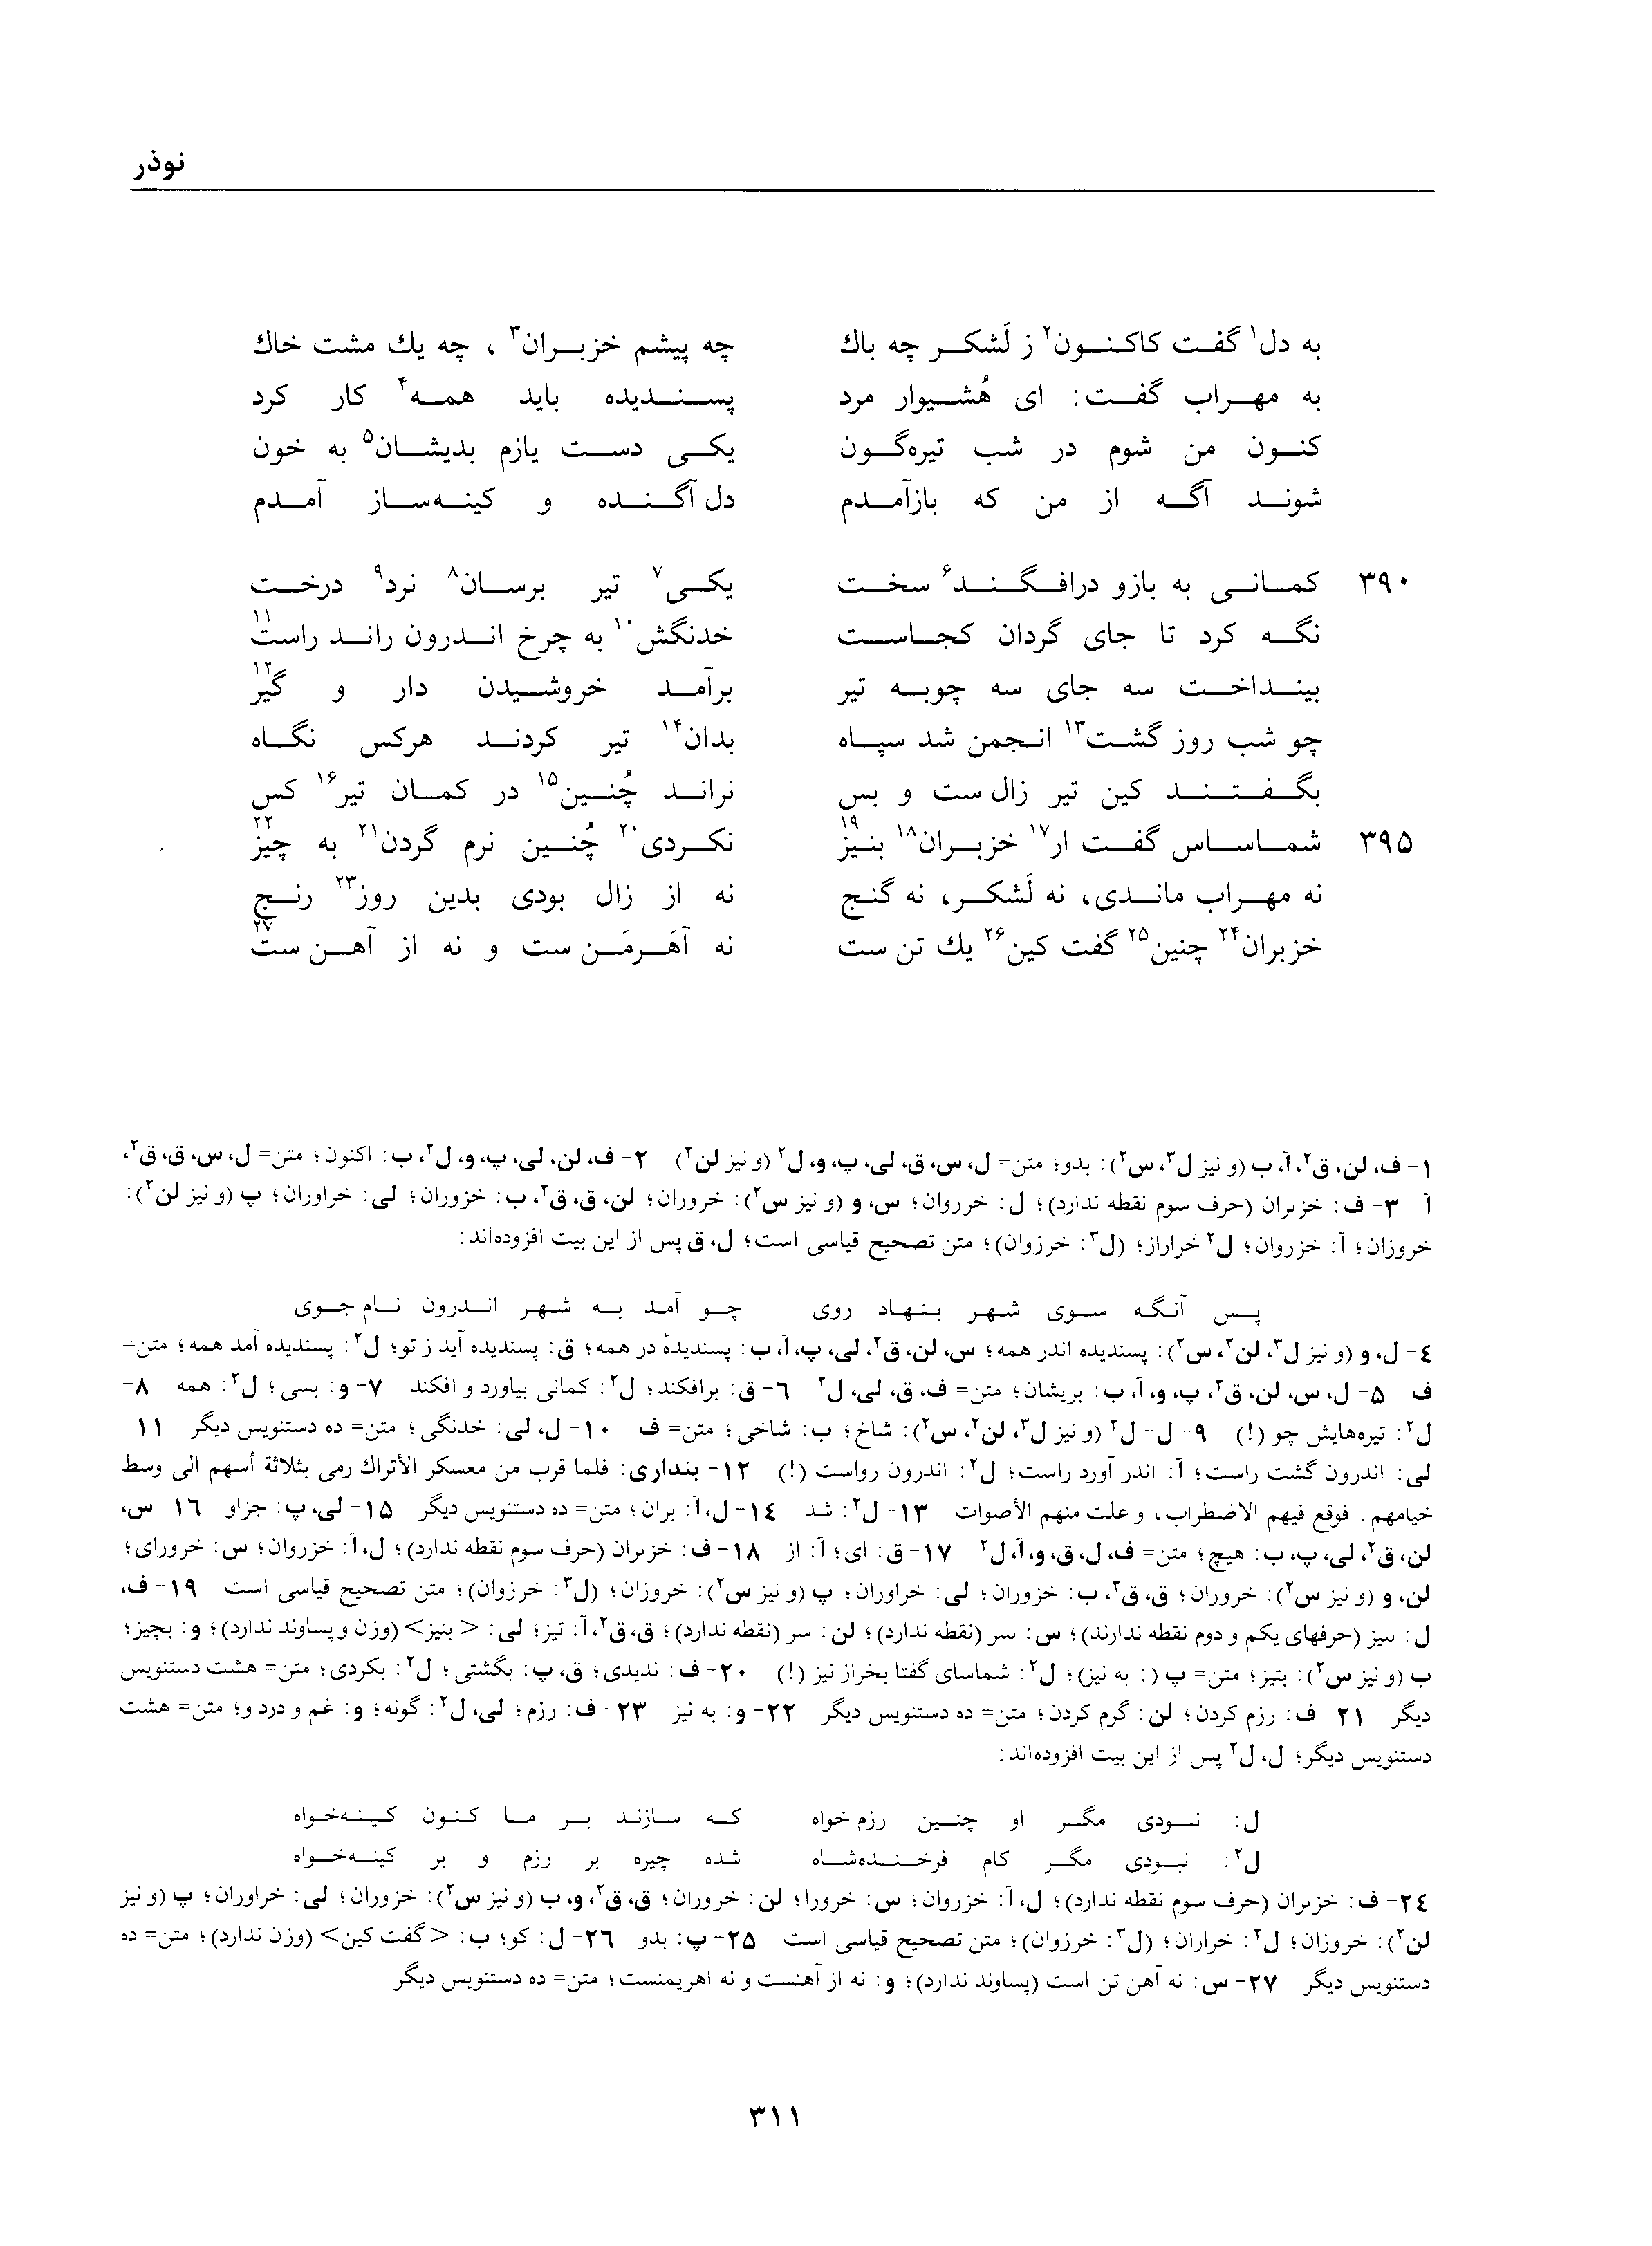 نوذر
به دل۱ گفت کاکنون۲ ز لَشکر چه باك چه پیشم خزبران۳ ، چه یك مشت خاك
به مهراب گفت: ای هُشیوار مرد پسندیده باید همه۴ کار کرد
کنون من شوم در شب تیره‌گون یکی دست یازم بدیشان۵ به خون
شوند آگه از من که بازآمدم دل آگنده و کینه‌ساز آمدم
۳۹۰ کمانی به بازو درافگند۶ سخت یکی۷ تیر برسان۸ نرد۹ درخت
نگه کرد تا جای گردان کجاست خدنگش۱۰ به چرخ اندرون راند راست۱۱
بینداخت سه جای سه چوبه تیر برآمد خروشیدن دار و گیر۱۲
چو شب روز گشت۱۳ انجمن شد سپاه بدان۱۴ تیر کردند هرکس نگاه
بگفتند کین تیر زال ست و بس نراند چُنین۱۵ در کمان تیر۱۶ کس
۳۹۵ شماساس گفت ار۱۷ خزبران۱۸ بنیز۱۹ نکردی۲۰ چُنین نرم گردن۲۱ به چیز۲۲
نه مهراب ماندی، نه لَشکر، نه گنج نه از زال بودی بدین روز۲۳ رنج
خزبران۲۴ چنین۲۵ گفت کین۲۶ یك تن ست نه آهَرمَن ست و نه از آهن ست۲۷
۱- ف، لن، ق۲، آ، ب (و نیز ل۳، س۲): بدو؛ متن= ل، س، ق، لی، پ، و، ل۲ (و نیز لن۲) ۲- ف، لن، لی، پ، و، ل۲، ب: اکنون؛ متن= ل، س، ق، ق۲،
آ ۳- ف: خزىران (حرف سوم نقطه ندارد)؛ ل: خرروان؛ س، و (و نیز س۲): خروران؛ لن، ق، ق۲، ب: خزوران؛ لی: خراوران؛ پ (و نیز لن۲):
خروزان؛ آ: خزروان؛ ل۲ خراراز؛ (ل۳: خرزوان)؛ متن تصحیح قیاسی است؛ ل، ق پس از این بیت افزوده‌اند:
پس آنگه سوی شهر بنهاد روی چو آمد به شهر اندرون نام جوی
۴- ل، و (و نیز ل۳، لن۲، س۲): پسندیده اندر همه؛ س، لن، ق۲، لی، پ، آ، ب: پسندیدهٔ در همه؛ ق: پسندیده آید ز تو؛ ل۲: پسندیده آمد همه؛ متن=
ف ۵- ل، س، لن، ق۲، پ، و، آ، ب: بریشان؛ متن= ف، ق، لی، ل۲ ۶- ق: برافکند؛ ل۲: کمانی بیاورد و افکند ۷- و: بسی؛ ل۲: همه ۸-
ل۲: تیره‌هایش چو (!) ۹- ل- ل۲ (و نیز ل۳، لن۲، س۲): شاخ؛ ب: شاخی؛ متن= ف ۱۰- ل، لی: خدنگی؛ متن= ده دستنویس دیگر ۱۱-
لی: اندرون گشت راست؛ آ: اندر آورد راست؛ ل۲: اندرون رواست (!) ۱۲- بنداری: فلما قرب من معسکر الأتراك رمی بثلاثة أسهم الی وسط
خیامهم. فوقع فیهم الاضطراب، و علت منهم الأصوات ۱۳- ل۲: شد ۱۴- ل، آ: بران؛ متن= ده دستنویس دیگر ۱۵- لی، پ: جزاو ۱۶- س،
لن، ق۲، لی، پ، ب: هیچ؛ متن= ف، ل، ق، و، آ، ل۲ ۱۷- ق: ای؛ آ: از ۱۸- ف: خزىران (حرف سوم نقطه ندارد)؛ ل، آ: خزروان؛ س: خرورای؛
لن، و (و نیز س۲): خروران؛ ق، ق۲، ب: خزوران؛ لی: خراوران؛ پ (و نیز س۲): خروزان؛ (ل۳: خرزوان)؛ متن تصحیح قیاسی است ۱۹- ف،
ل: ىىىز (حرفهای یکم و دوم نقطه ندارند)؛ س: ىىىر (نقطه ندارد)؛ لن: ىىر (نقطه ندارد)؛ ق، ق۲، آ: تیز؛ لی: <بنیز> (وزن و پساوند ندارد)؛ و: بچیز؛
ب (و نیز س۲): بتیز؛ متن= پ (: به نیز)؛ ل۲: شماسای گفتا بخراز نیز (!) ۲۰- ف: ندیدی؛ ق، پ: بگشتی؛ ل۲: بکردی؛ متن= هشت دستنویس
دیگر ۲۱- ف: رزم کردن؛ لن: گرم کردن؛ متن= ده دستنویس دیگر ۲۲- و: به نیز ۲۳- ف: رزم؛ لی، ل۲: گونه؛ و: غم و درد و؛ متن= هشت
دستنویس دیگر؛ ل، ل۲ پس از این بیت افزوده‌اند:
ل: نبودی مگر او چنین رزم خواه که سازند بر ما کنون کینه‌خواه
ل۲: نبودی مگر کام فرخنده‌شاه شده چیره بر رزم و بر کینه‌خواه
۲۴- ف: خزىران (حرف سوم نقطه ندارد)؛ ل، آ: خزروان؛ س: خرورا؛ لن: خروران؛ ق، ق۲، و، ب (و نیز س۲): خزوران؛ لی: خراوران؛ پ (و نیز
لن۲): خروزان؛ ل۲: خراران؛ (ل۳: خرزوان)؛ متن تصحیح قیاسی است ۲۵- پ: بدو ۲۶- ل: کو؛ ب: <گفت کین> (وزن ندارد)؛ متن= ده
دستنویس دیگر ۲۷- س: نه آهن تن است (پساوند ندارد)؛ و: نه از آهنست و نه اهریمنست؛ متن= ده دستنویس دیگر
۳۱۱